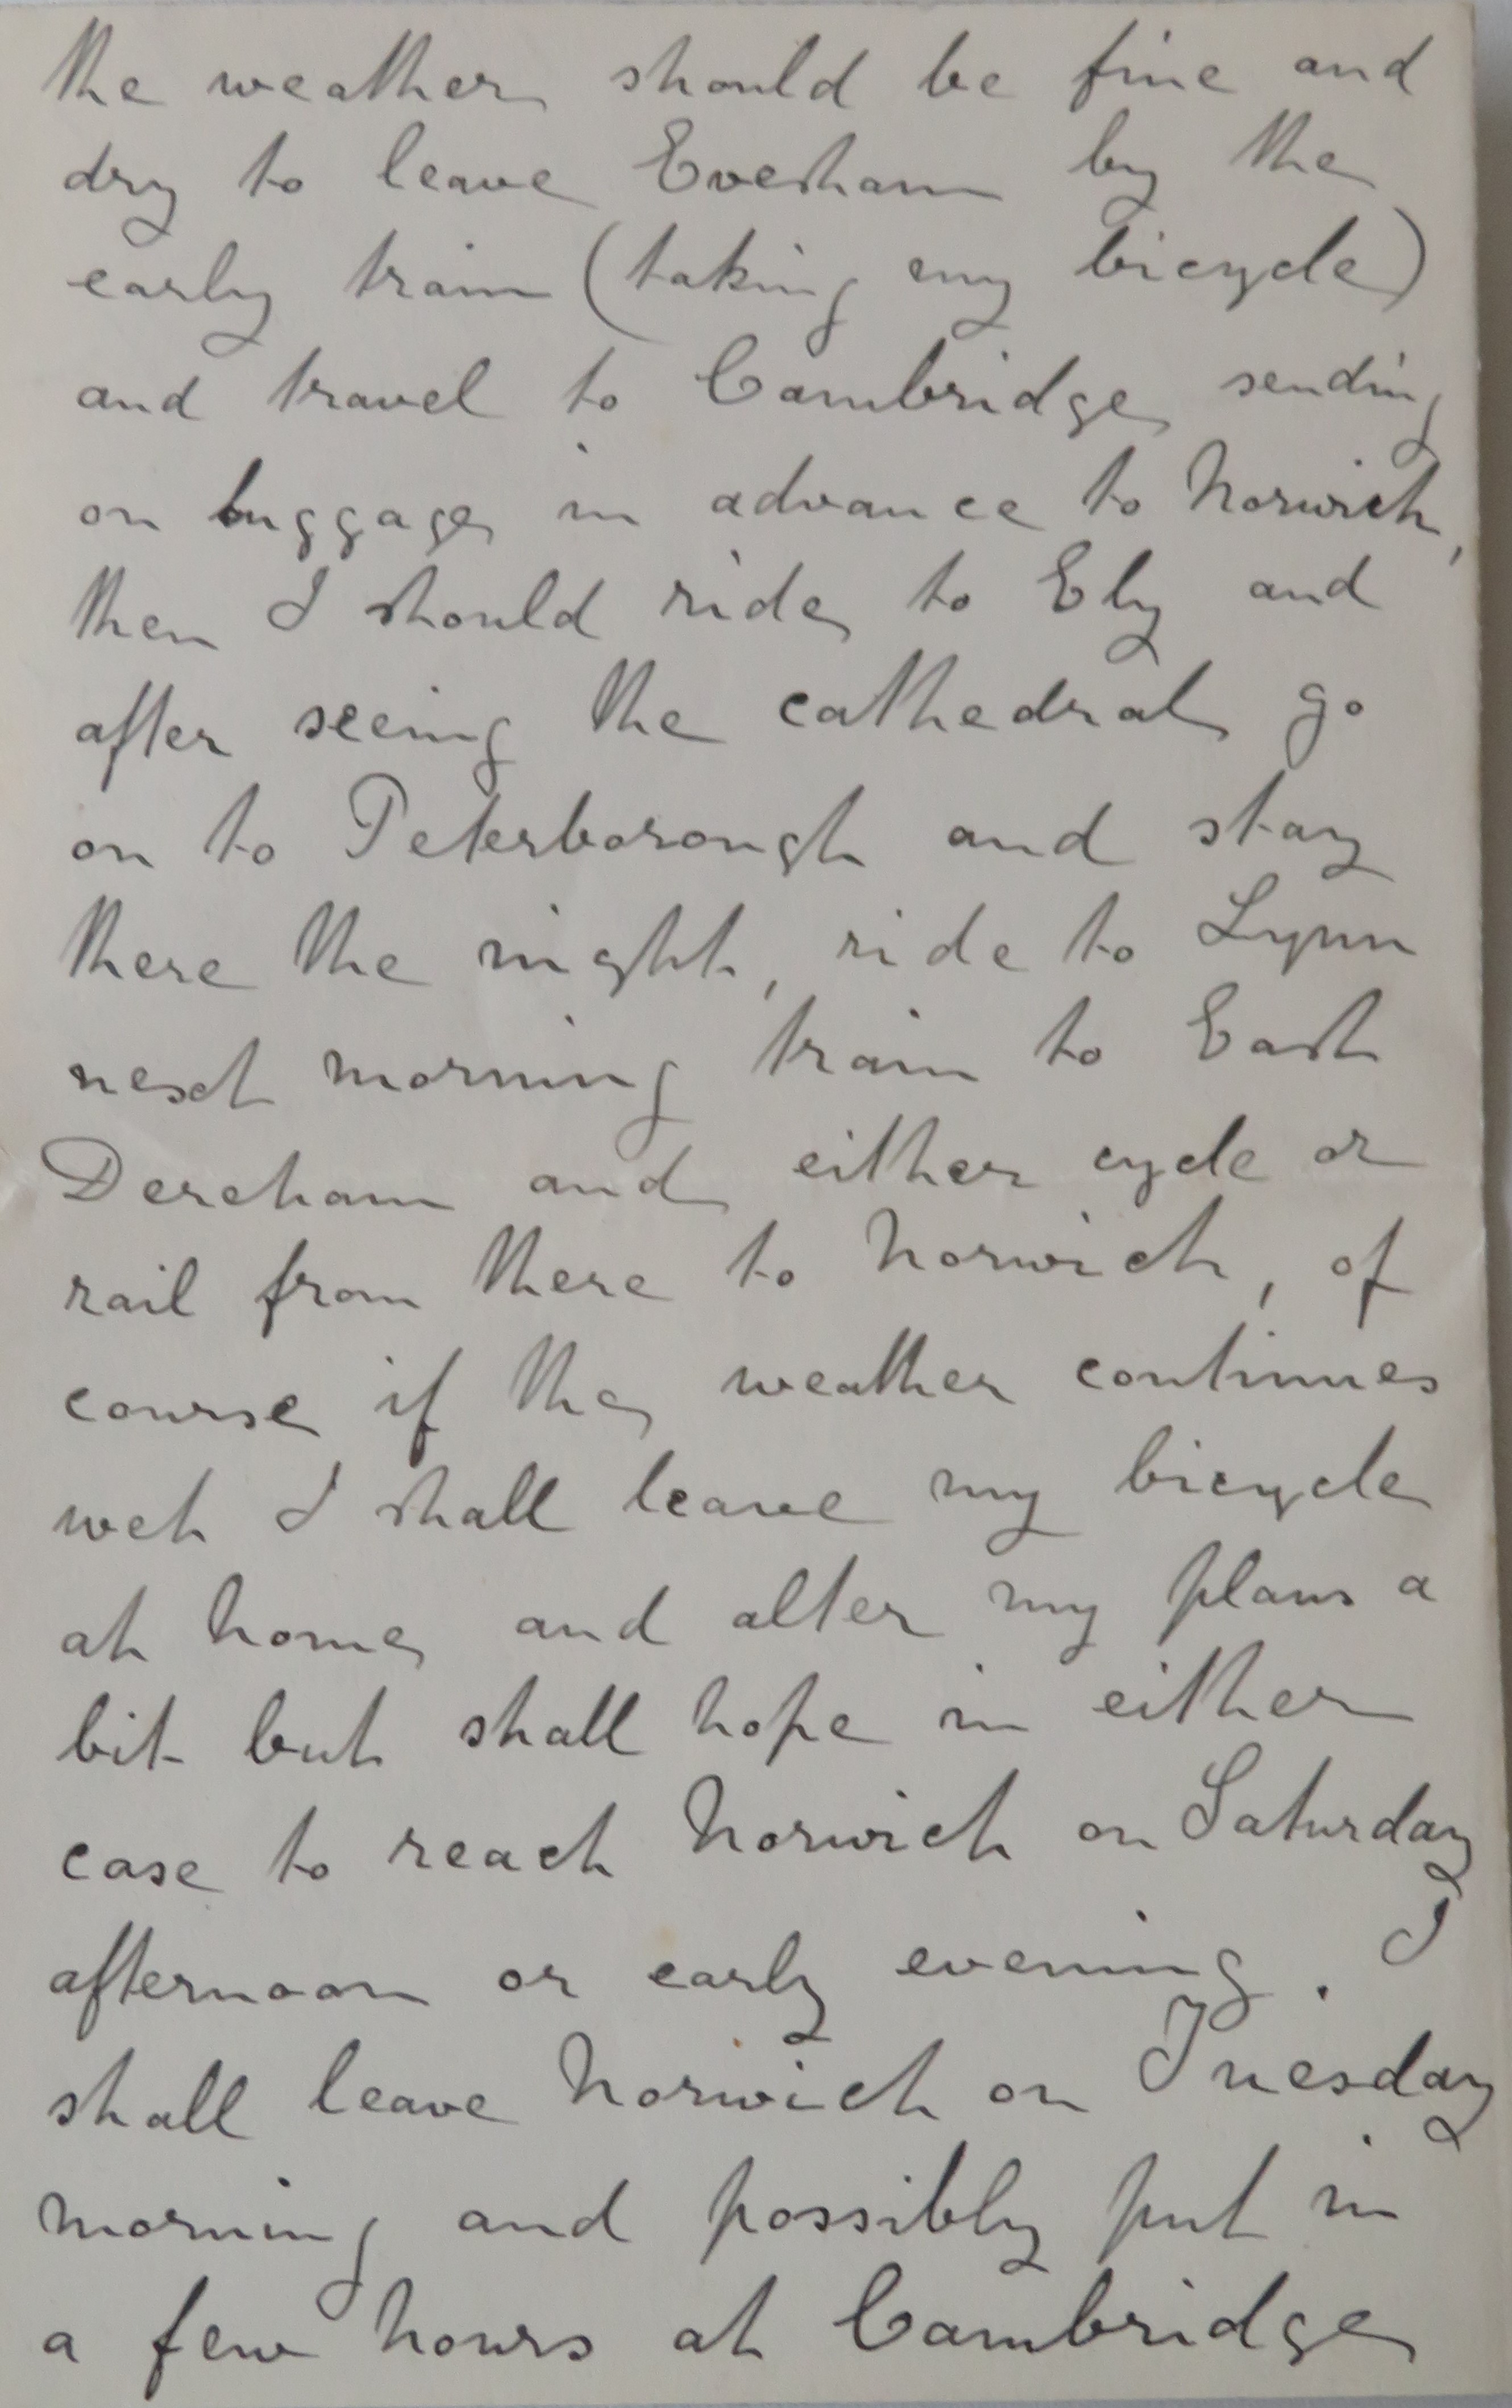 the weather should be fine and
dry to leave Evesham by the
early train (taking my bicycle)
and travel to Cambridge sending
on luggage in advance to Norwich,
then I should ride to Ely and
after seeing the cathedral go
on to Peterborough and stay
there the night, ride to Lynn
next morning train to East
Dereham and either cycle or
rail from there to Norwich, of
course if the weather continues
wet I shall leave my bicycle
at home and alter my plans a
bit but shall hope in either
case to reach Norwich on Saturday
afternoon or early evening. I
shall leave Norwich on Tuesday
morning and possibly put in
a few hours at Cambridge